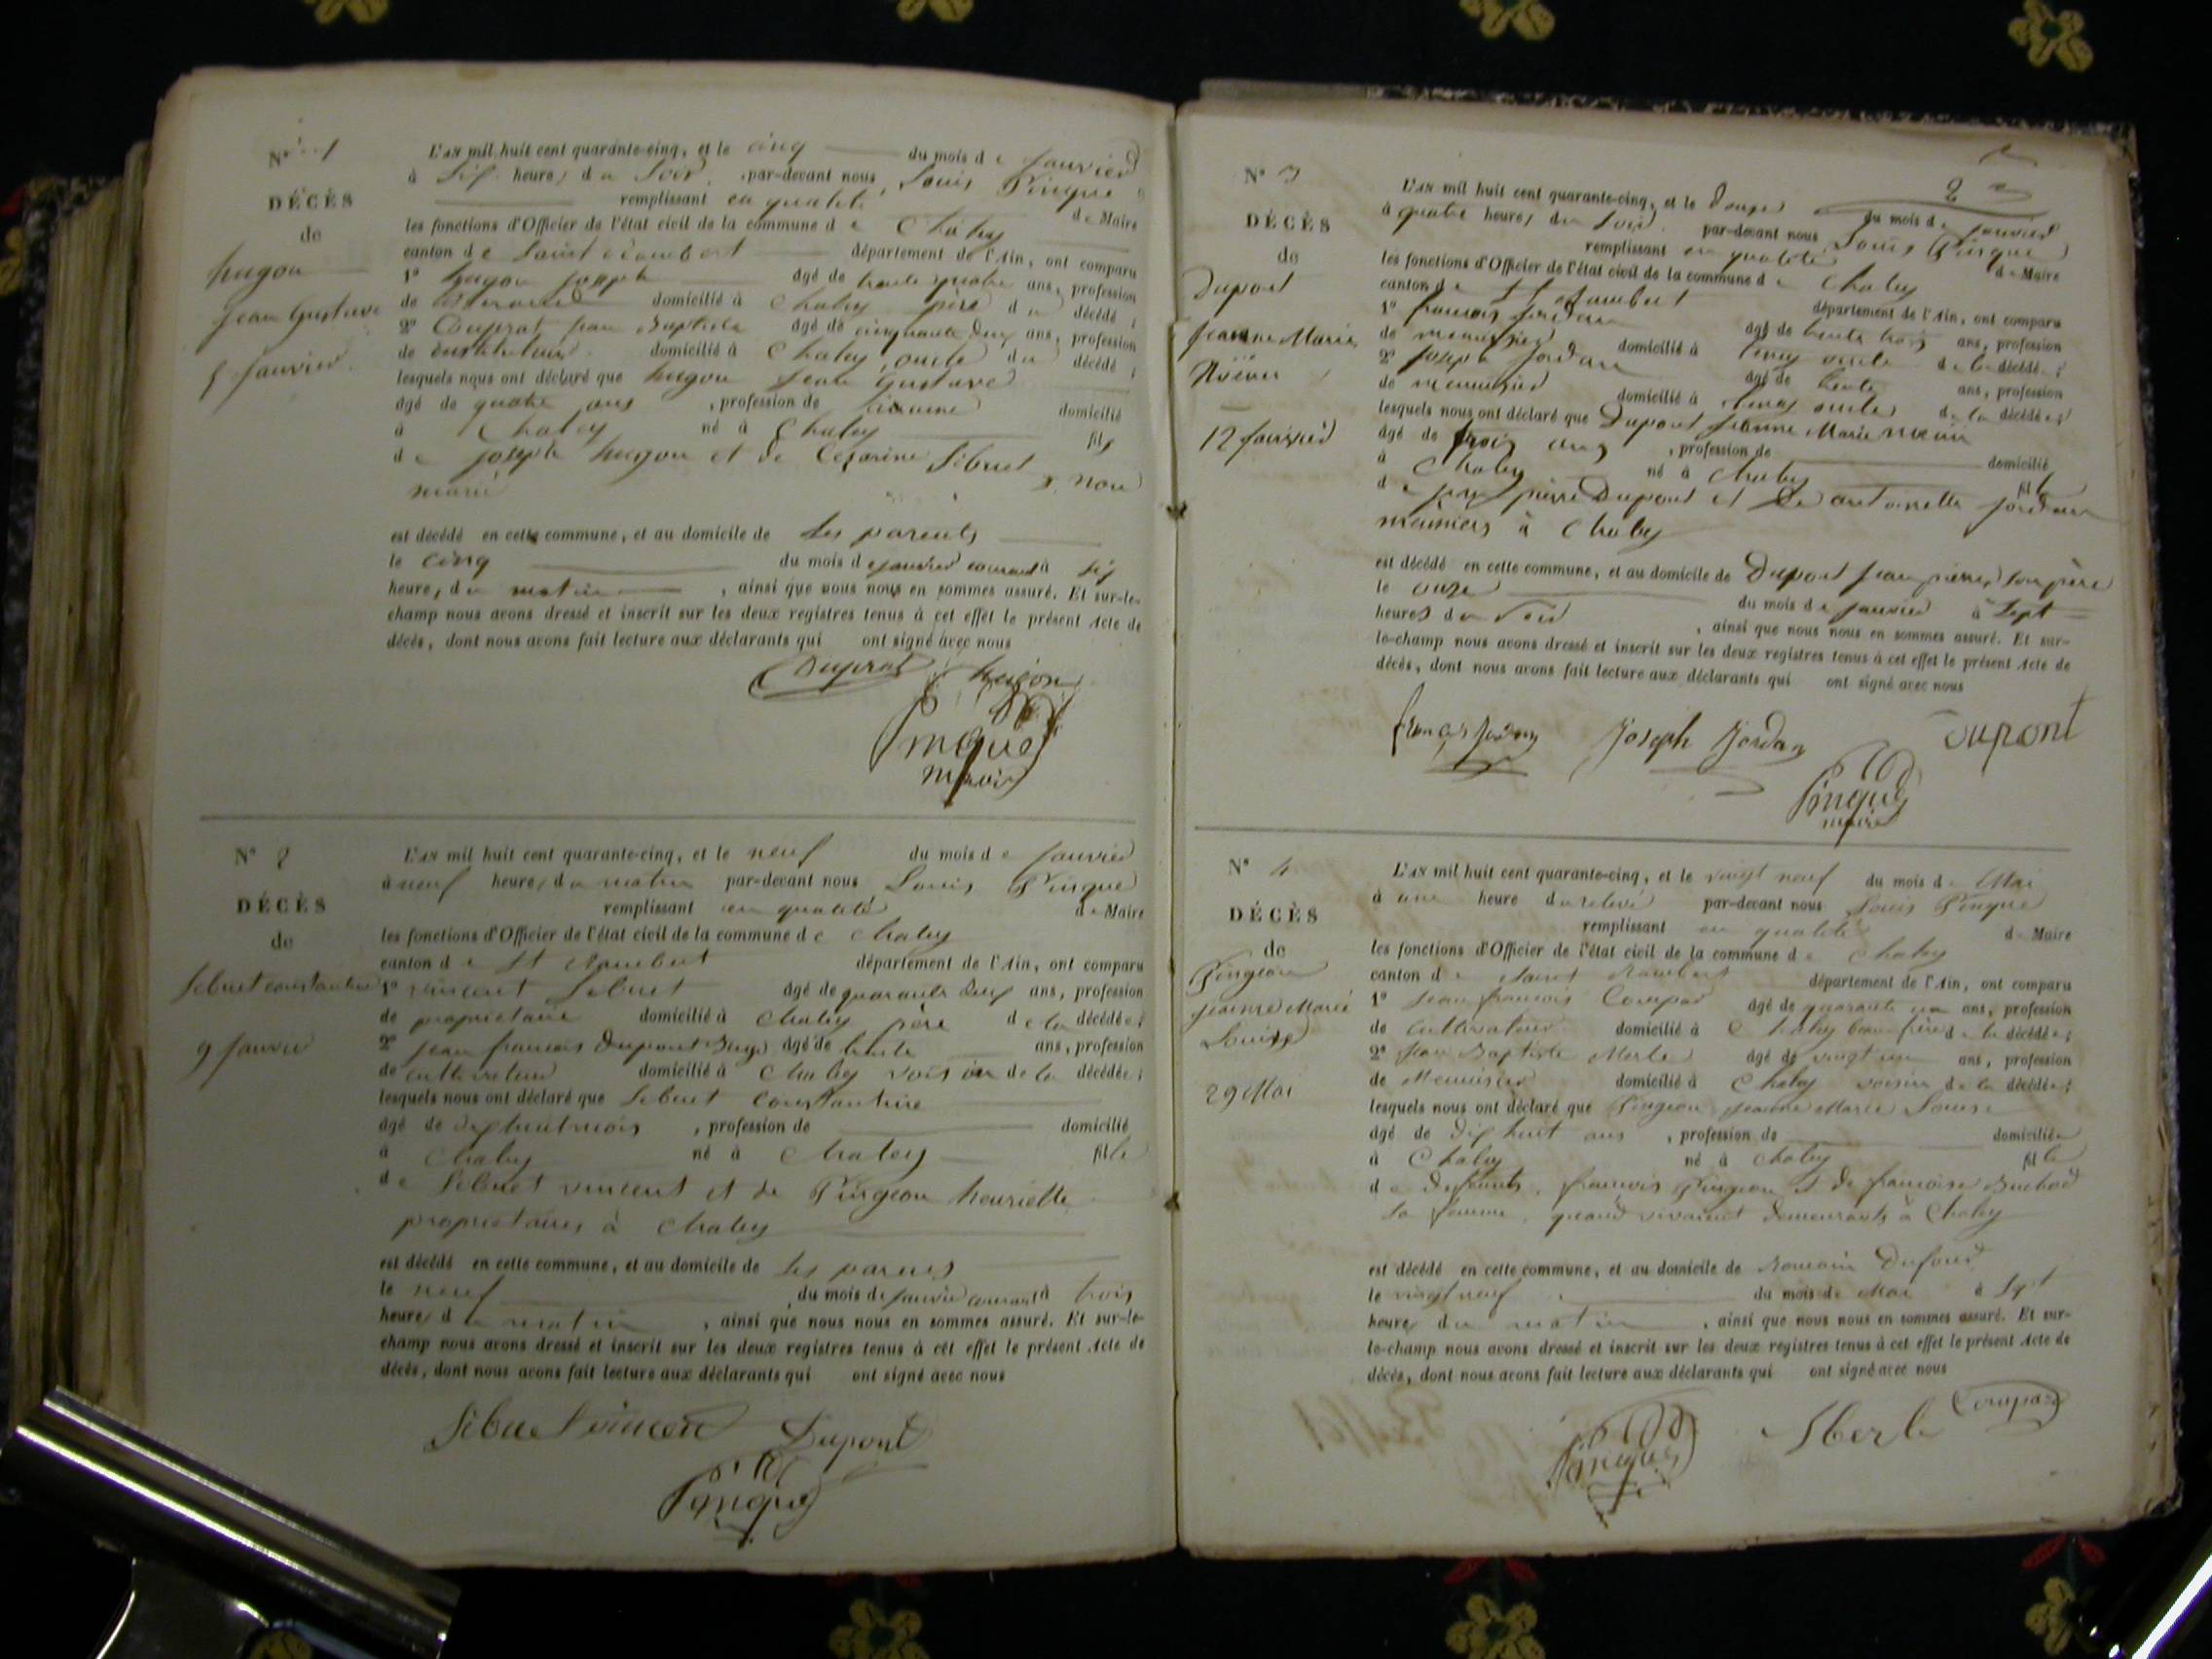 N° 1
DÉCÈS
de
hugon
Jean Gustave
5 Janvier
L'AN mil huit cent quarante-cinq, et le cinq du mois de Janvier
à Six heures du Soir, par-devant nous Louis Pingue
remplissant en qualité de Maire
les fonctions d'Officier de l'état civil de la commune de Chaley
canton de Saint Rambert département de l'Ain, ont comparu
1° hugon Joseph âgé de trente quatre ans, profession
de domicilié à Chaley père du décédé;
2° Couprat Jean Baptiste âgé de cinquante deux ans, profession
de instituteur domicilié à Chaley, oncle du décédé;
lesquels nous ont déclaré que hugon Jean Gustave
âgé de quatre ans, profession de domicilié
à Chaley né à Chaley fils
de Joseph hugon et de Cézarine Sibuet, non
marié
est décédé en cette commune, et au domicile de Ses parents
le cinq du mois de Janvier courant à six
heures du matin, ainsi que nous nous en sommes assuré. Et sur-le-
champ nous avons dressé et inscrit sur les deux registres tenus à cet effet le présent Acte de
décès, dont nous avons fait lecture aux déclarants qui ont signé avec nous
hugon
Pingue
maire
N° 2
DÉCÈS
de
Sibuet constantine
9 Janvier
L'AN mil huit cent quarante-cinq, et le neuf du mois de Janvier
à neuf heures du matin par-devant nous Louis Pingue
remplissant en qualité de Maire
les fonctions d'Officier de l'état civil de la commune de Chaley
canton de St Rambert département de l'Ain, ont comparu
1° vincent Sibuet âgé de quarante deux ans, profession
de propriétaire domicilié à Chaley père de la décédée;
2° Jean françois Dupont âgé de trente ans, profession
de cultivateur domicilié à Chaley voisin de la décédée;
lesquels nous ont déclaré que Sibuet Constantine
âgé de dix huit mois, profession de domicilié
à Chaley né à Chaley fille
de Sibuet vincent et de Pingeon henriette
propriétaires à Chaley
est décédé en cette commune, et au domicile de Ses parents
le neuf du mois de Janvier courant à trois
heures du matin, ainsi que nous nous en sommes assuré. Et sur-le-
champ nous avons dressé et inscrit sur les deux registres tenus à cet effet le présent Acte de
décès, dont nous avons fait lecture aux déclarants qui ont signé avec nous
Sibuet vincent Dupont
Pingue
2
N° 3
DÉCÈS
de
Dupont
Jeanne Marie
12 Janvier
L'AN mil huit cent quarante-cinq, et le Douze du mois de Janvier
à quatre heures du Soir par-devant nous Louis Pingue
remplissant en qualité de Maire
les fonctions d'Officier de l'état civil de la commune de Chaley
canton de St Rambert département de l'Ain, ont comparu
1° françois Jordan âgé de trente trois ans, profession
de menuisier domicilié à Tenay oncle de la décédée;
2° Joseph Jordan âgé de trente ans, profession
de menuisier domicilié à Tenay oncle de la décédée;
lesquels nous ont déclaré que Dupont Jeanne Marie
âgé de trois ans, profession de domicilié
à Chaley né à Chaley fille
de Jean pierre Dupont et de antoinette Jordan
meuniers à Chaley
est décédé en cette commune, et au domicile de Dupont Jean pierre, son père
le onze du mois de Janvier à Sept
heures du Soir, ainsi que nous nous en sommes assuré. Et sur-
le-champ nous avons dressé et inscrit sur les deux registres tenus à cet effet le présent Acte de
décès, dont nous avons fait lecture aux déclarants qui ont signé avec nous
françois Jordan Joseph Jordan Dupont
Pingue
maire
N° 4
DÉCÈS
de
Pingeon
Jeanne Marie
Louise
29 Mai
L'AN mil huit cent quarante-cinq, et le vingt neuf du mois de Mai
à une heure du relevé par-devant nous Louis Pingue
remplissant en qualité de Maire
les fonctions d'Officier de l'état civil de la commune de Chaley
canton de Saint Rambert département de l'Ain, ont comparu
1° Jean françois Compar âgé de quarante un ans, profession
de Cultivateur domicilié à Chaley beau-frère de la décédée;
2° Jean Baptiste Merle âgé de vingt un ans, profession
de Menuisier domicilié à Chaley voisin de la décédée;
lesquels nous ont déclaré que Pingeon Jeanne Marie Louise
âgé de dix huit ans, profession de domiciliée
à Chaley né à Chaley fille
de Defeunts, françois Pingeon & de françoise
sa femme, quand vivaient demeurants à Chaley
est décédé en cette commune, et au domicile de Romain Dufour
le vingt neuf du mois de Mai à Sept
heures du matin, ainsi que nous nous en sommes assuré. Et sur-
le-champ nous avons dressé et inscrit sur les deux registres tenus à cet effet le présent Acte de
décès, dont nous avons fait lecture aux déclarants qui ont signé avec nous
Pingue Merle Compar